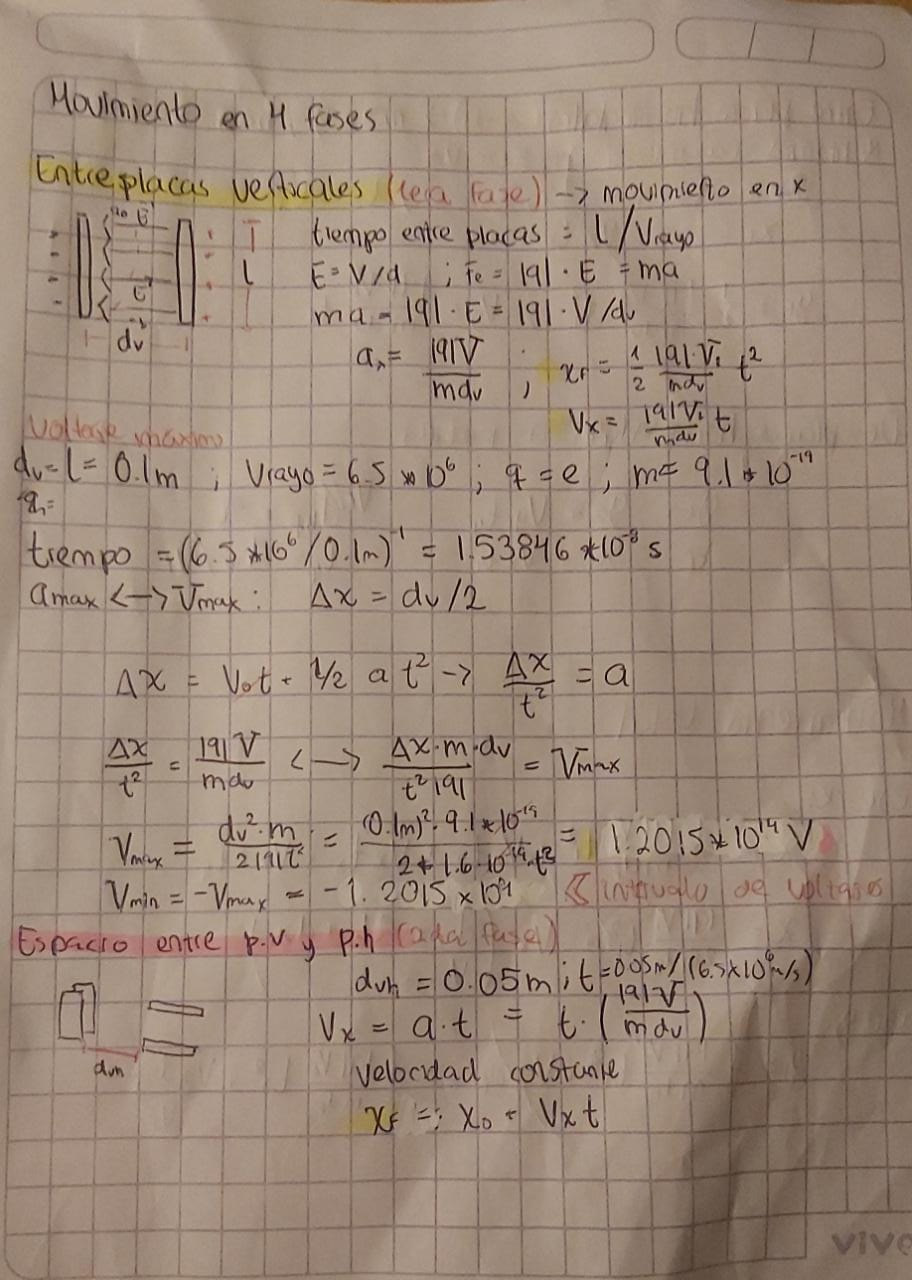 Movimiento en 4 fases
Entre placas verticales (1era fase) -> movimiento en x
tiempo entre placas = l/Vrayo
E = V/d ; Fe = |q| · E = ma
ma = |q| · E = |q| · V/dv
l
E
dv
ax = |q|V/mdv ; xf = 1/2 |q|·V1/mdv t²
Vx = |q|V1/mdv t
Voltaje maximo
dv = l = 0.1m ; Vrayo = 6.5 * 10⁶ ; q = e ; m = 9.1 * 10⁻¹⁹
tiempo = (6.5*10⁶/0.1m)⁻¹ = 1.53846 *10⁻⁸ s
amax <-> Vmax : Δx = dv/2
Δx = V0t + 1/2 a t² -> Δx/t² = a
Δx/t² = |q|V/mdv <-> Δx·m·dv/t²|q| = Vmax
Vmax = dv²·m/2|q|t² = (0.1m)²·9.1*10⁻¹⁹/2*1.6·10⁻¹⁹·t² = 1.2015*10¹⁴ V
Vmin = -Vmax = -1.2015 x 10¹⁴ intervalo de voltajes
Espacio entre p.v y p.h (2da fase)
dvh = 0.05m ; t = 0.05m/(6.5x10⁶m/s)
Vx = a·t = t·(|q|V/mdv)
dvh
velocidad constante
xf =: x0 + Vxt
vive